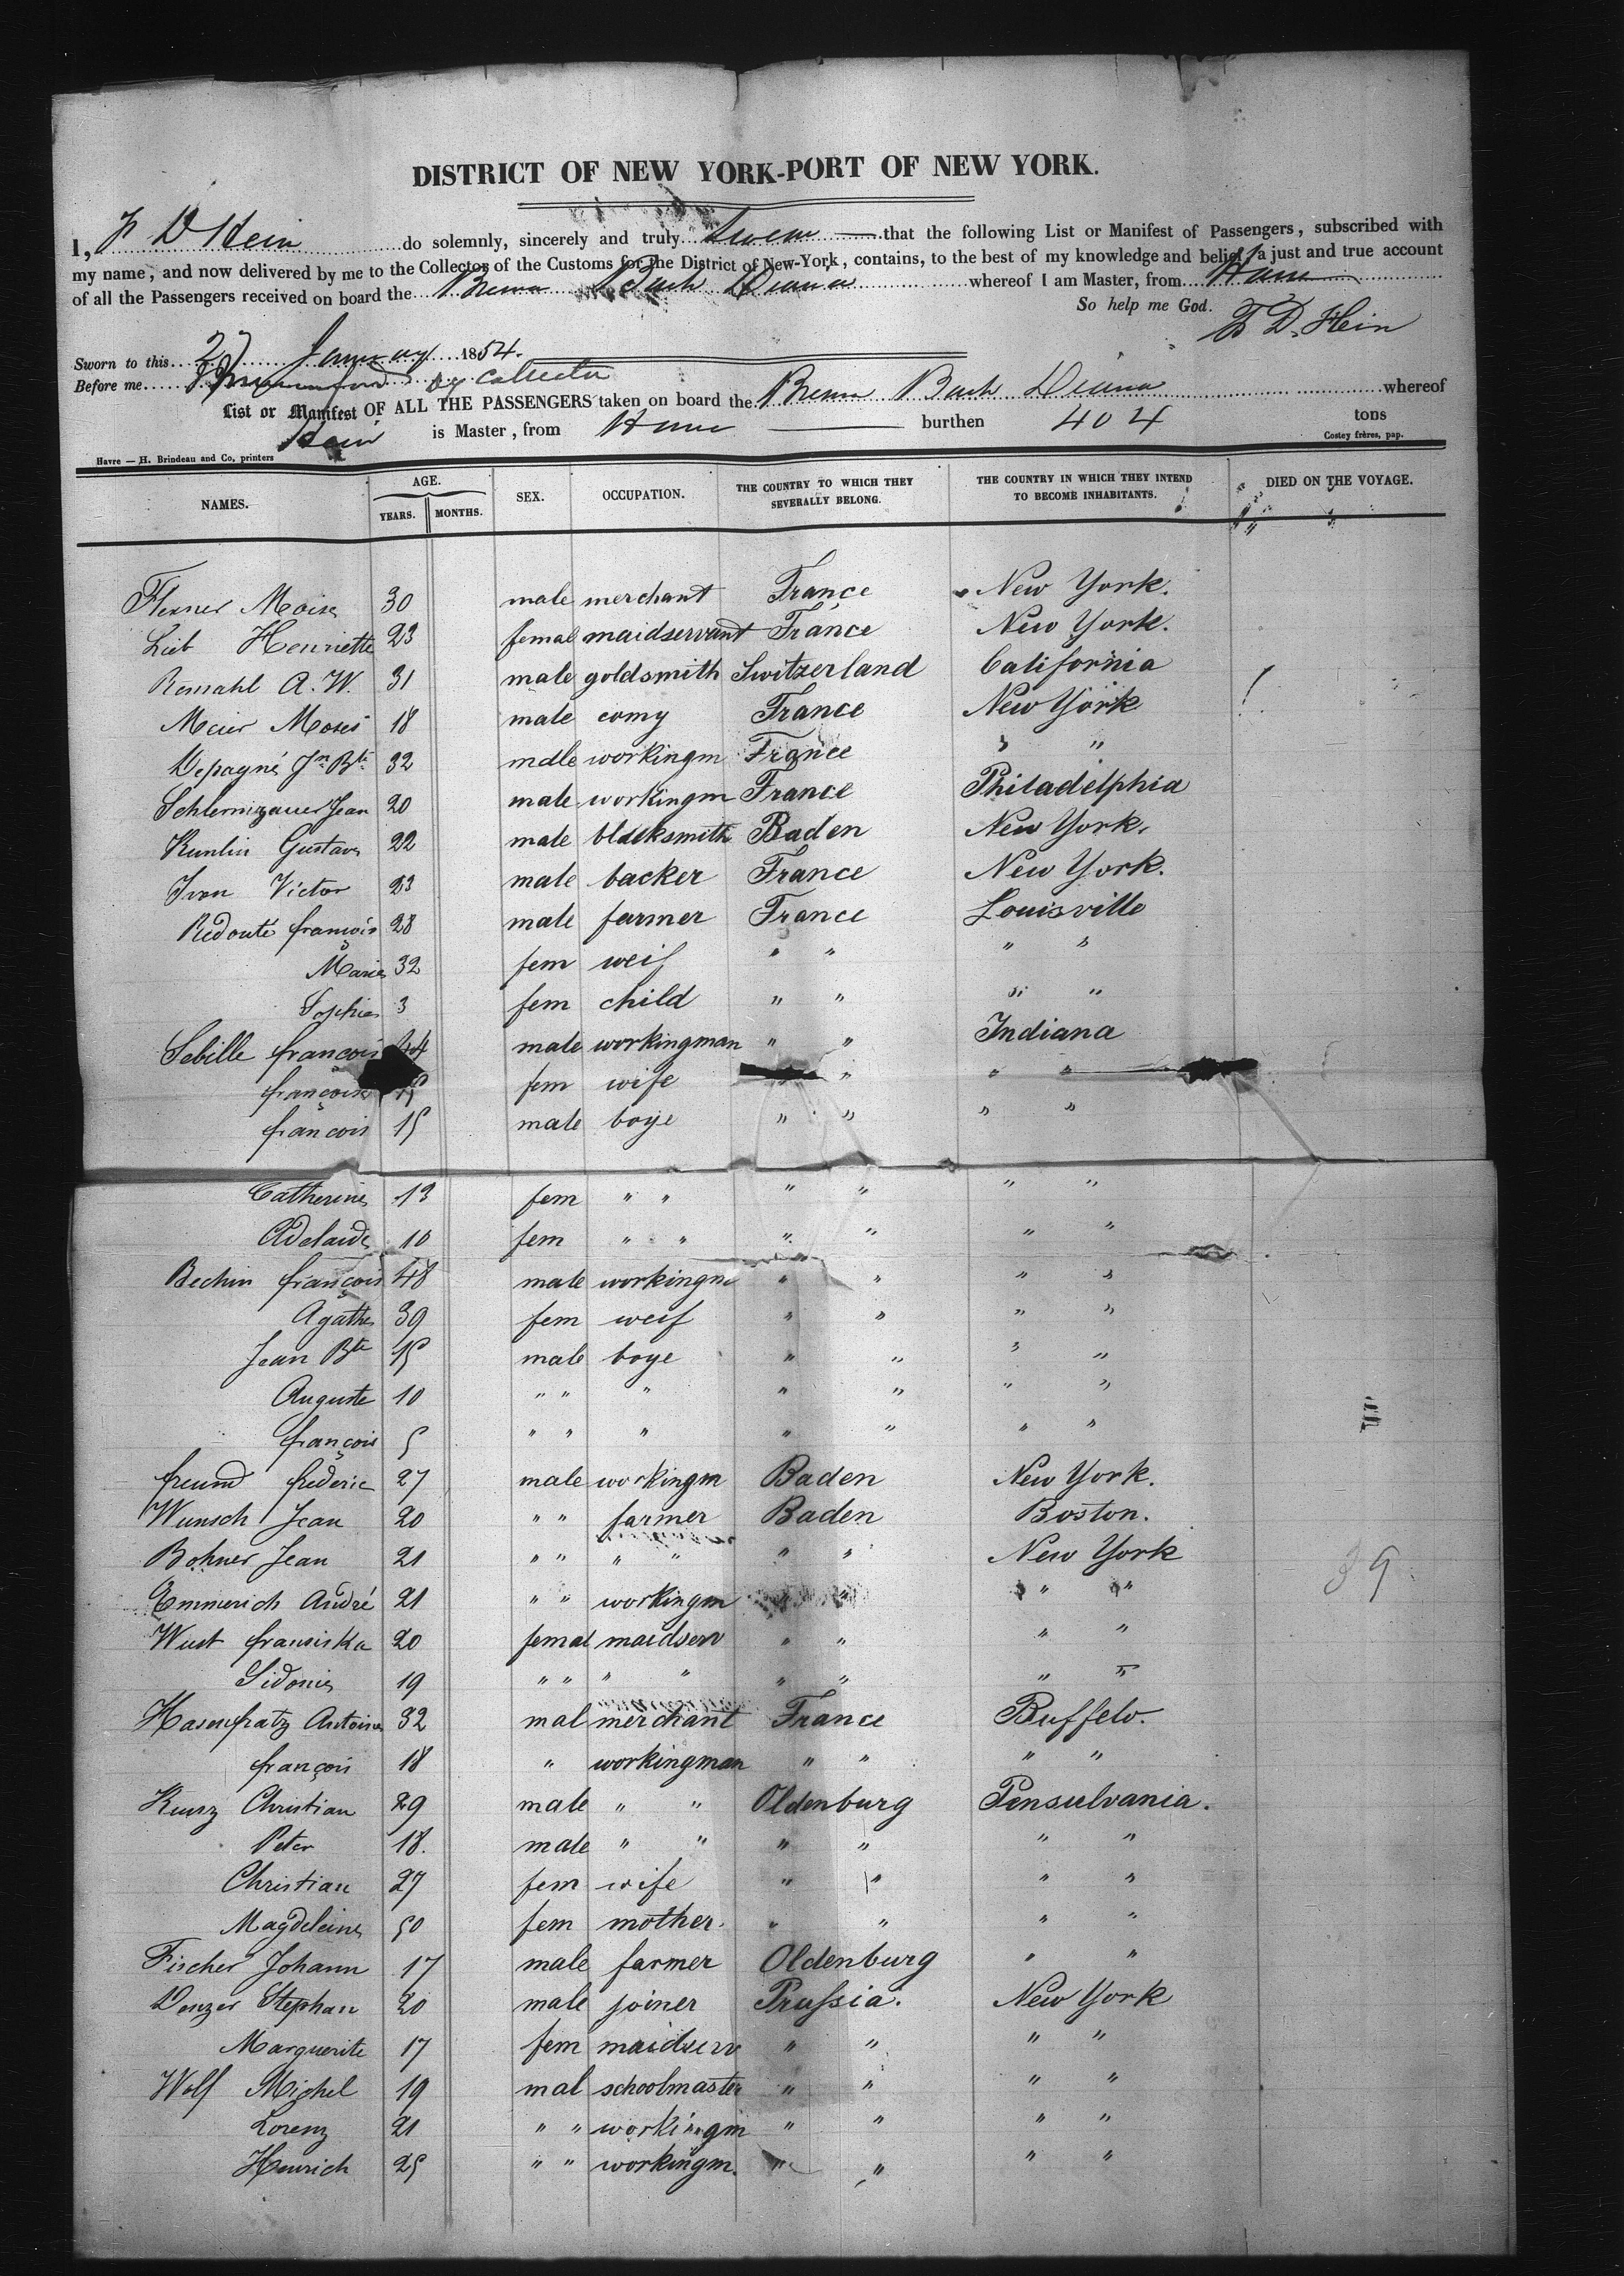 DISTRICT OF NEW YORK-PORT OF NEW YORK.
I, F D Hein do solemnly, sincerely and truly Swear that the following List or Manifest of Passengers, subscribed with
my name, and now delivered by me to the Collector of the Customs for the District of New-York, contains, to the best of my knowledge and belief, a just and true account
of all the Passengers received on board the Brem Bark Diana whereof I am Master, from Havre
So help me God.
F D. Hein
Sworn to this 27 January 1854.
Before me Dy Collector
List or Manifest OF ALL THE PASSENGERS taken on board the Brem Bark Diana whereof
Hein is Master, from Havre burthen 404 tons
Havre — H. Brindeau and Co, printers
Costey frères, pap.
NAMES. AGE. YEARS. MONTHS. SEX. OCCUPATION. THE COUNTRY TO WHICH THEY SEVERALLY BELONG. THE COUNTRY IN WHICH THEY INTEND TO BECOME INHABITANTS. DIED ON THE VOYAGE.
Flexner Moise 30 male merchant France New York.
Lieb Henriette 23 femal maidservant France New York.
Remahl A. W. 31 male goldsmith Switzerland California
Meier Moses 18 male comy France New York
Depagné Jn Bte 32 male workingm France " "
Jean 20 male workingm France Philadelphia
Kunlin Gustave 22 male blacksmith Baden New York.
Ivon Victor 23 male backer France New York.
Redouté françois 28 male farmer France Louisville
Marie 32 fem weif " " " "
Sophie 3 fem child " " " "
Sebille françois 44 male workingman " " Indiana
françoise fem wife " " "
françois 15 male boye " " " "
Catherine 13 fem " " " " " "
Adelaide 10 fem " " " " " "
Bechin françois 48 male workingm " " " "
Agathe 39 fem weif " " " "
Jean Bte 15 male boye " " " "
Auguste 10 " " " " " " "
françois 5 " " " " " " "
freund frederic 27 male workingm Baden New York.
Wunsch Jean 20 " " farmer Baden Boston.
Bohner Jean 21 " " " " " " New York
Emmerich André 21 " " workingm " " " "
39
Wust fransiska 20 femal maidserv " " " "
Sidonie 19 " " " " " " " "
Hasenfratz Antoine 32 mal merchant France Buffelo.
françois 18 " workingman " " " "
Kunz Christian 29 male " " Oldenburg Pensulvania.
Peter 18. male " " " " " "
Christian 27 fem wife " " " "
Magdeleine 50 fem mother. " " " "
Fischer Johann 17 male farmer Oldenburg " "
Denzer Stephan 20 male joiner Prussia. New York
Marguerite 17 fem maidserv " " " "
Wolf Michel 19 mal schoolmaster " " " "
Lorenz 21 " " workingm " " " "
Heinrich 25 " " workingm. " " " "